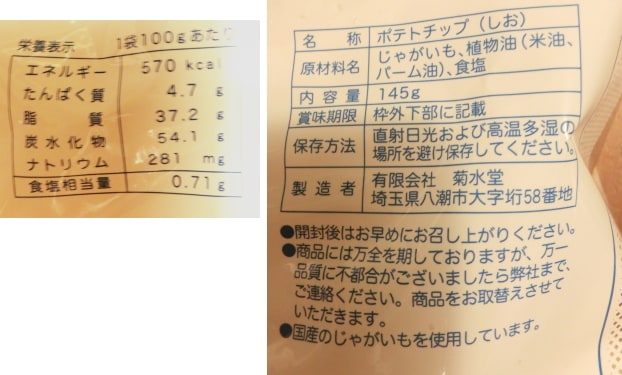 栄養表示 1袋100gあたり
エネルギー 570 kcal
たんぱく質 4.7 g
脂質 37.2 g
炭水化物 54.1 g
ナトリウム 281 mg
食塩相当量 0.71g
名称 ポテトチップ（しお）
原材料名 じゃがいも、植物油（米油、
パーム油）、食塩
内容量 145g
賞味期限 枠外下部に記載
保存方法 直射日光および高温多湿の
場所を避け保存してください。
製造者 有限会社 菊水堂
埼玉県八潮市大字垳58番地
●開封後はお早めにお召し上がりください。
●商品には万全を期しておりますが、万一
品質に不都合がございましたら弊社まで、
ご連絡ください。商品をお取替えさせて
いただきます。
●国産のじゃがいもを使用しています。